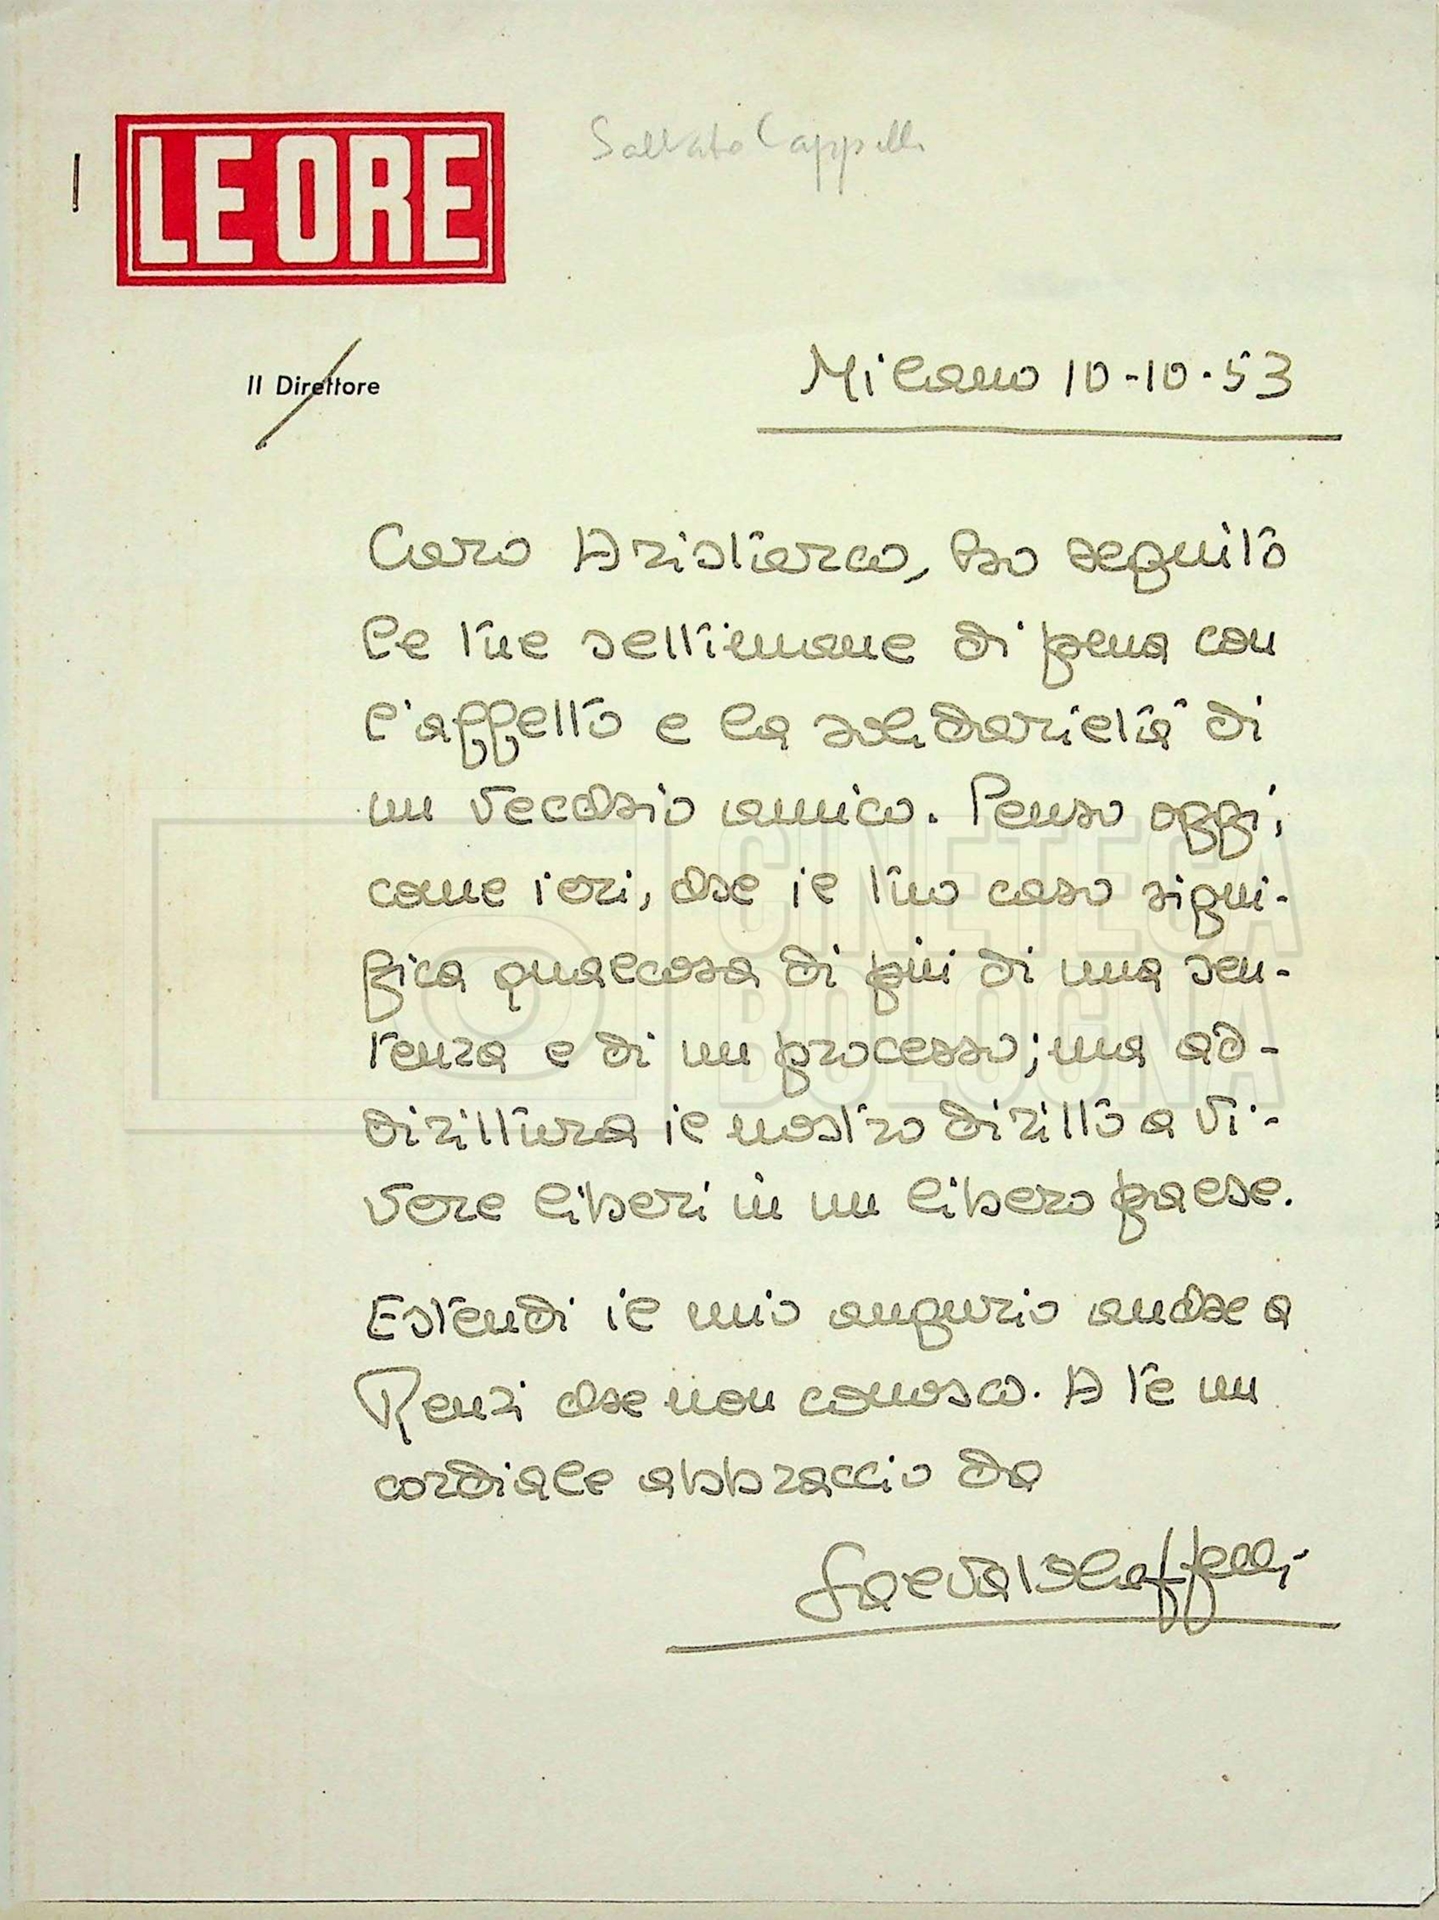 LE ORE
Salvato Cappelli
Il Direttore
Milano 10-10-53
Caro Aristarco, ho seguito
le tue settimane di pena con
l'affetto e la solidarietà di
un vecchio amico. Penso oggi,
come ieri, che il tuo caso signi-
fica qualcosa di più di una sen-
tenza e di un processo; ma ad-
dirittura il nostro diritto a vi-
vere liberi in un libero paese.
Estendi il mio augurio anche a
Renzi che non conosco. A te un
cordiale abbraccio da
CINETECA
BOLOGNA